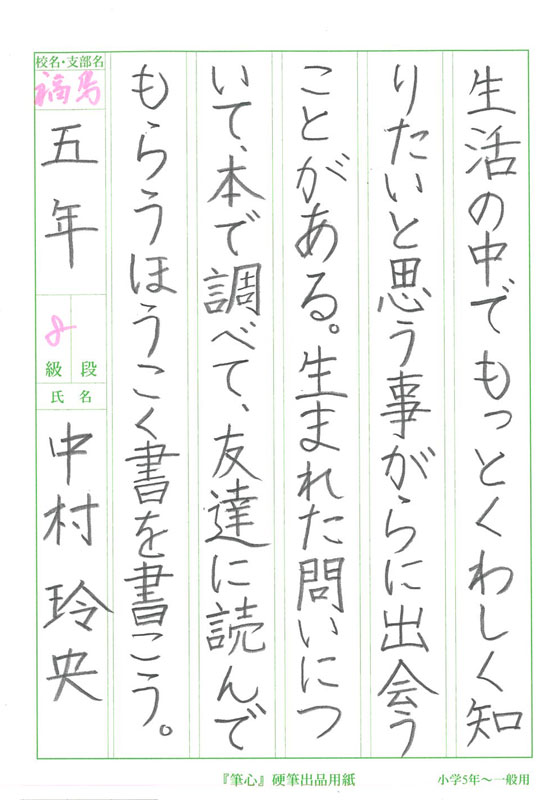 生活の中でもっとくわしく知
りたいと思う事がらに出会う
ことがある。生まれた問いにつ
いて、本で調べて、友達に読んで
もらうほうこく書を書こう。
校名・支部名
福島
五年
8
級 段
氏名
中村玲央
『筆心』硬筆出品用紙
小学5年～一般用